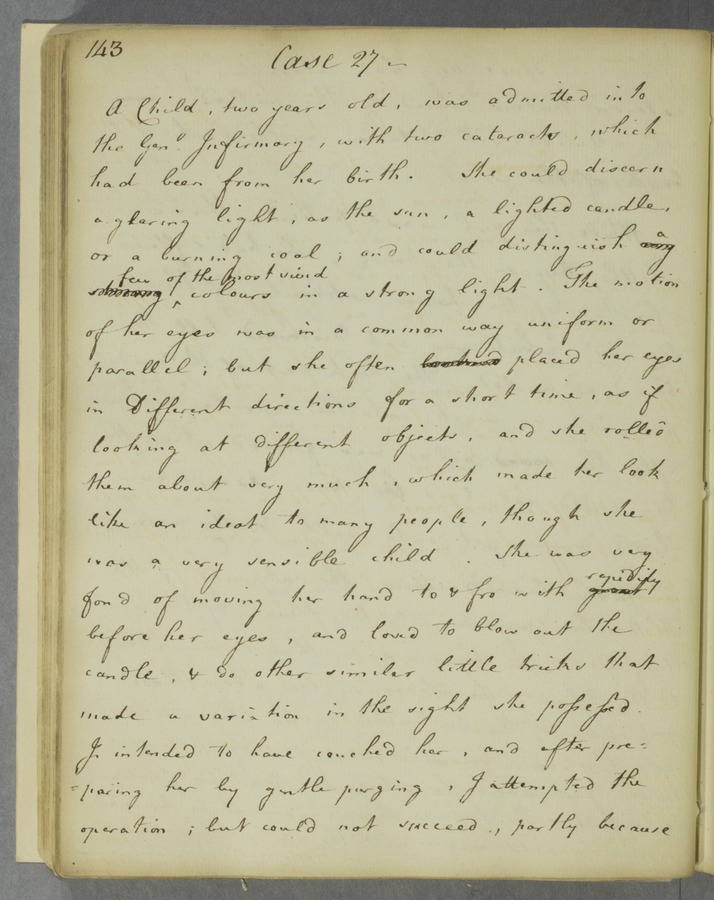 143
Case 27 -
A Child, two years old, was admitted into
the Genl. Infirmary, with two cataracts, which
had been from her birth. She could discern
a glaring light, as the sun, a lighted candle,
or a burning coal; and could distinguish a
few of the most vivid
colours in a strong light. The motion
of her eyes was in a common way uniform or
parallel; but she often placed her eyes
in Different directions for a short time, as if
looking at different objects, and she rolled
them about very much, which made her look
like an ideot to many people, though she
was a very sensible child. She was very
fond of moving her hand to & fro with rapidity
before her eyes, and loved to blow out the
candle, & do other similar little tricks that
made a variation in the sight she possess'd.
I intended to have couched her, and after pre=
=paring her by gentle purging, I attempted the
operation; but could not succeed, partly because